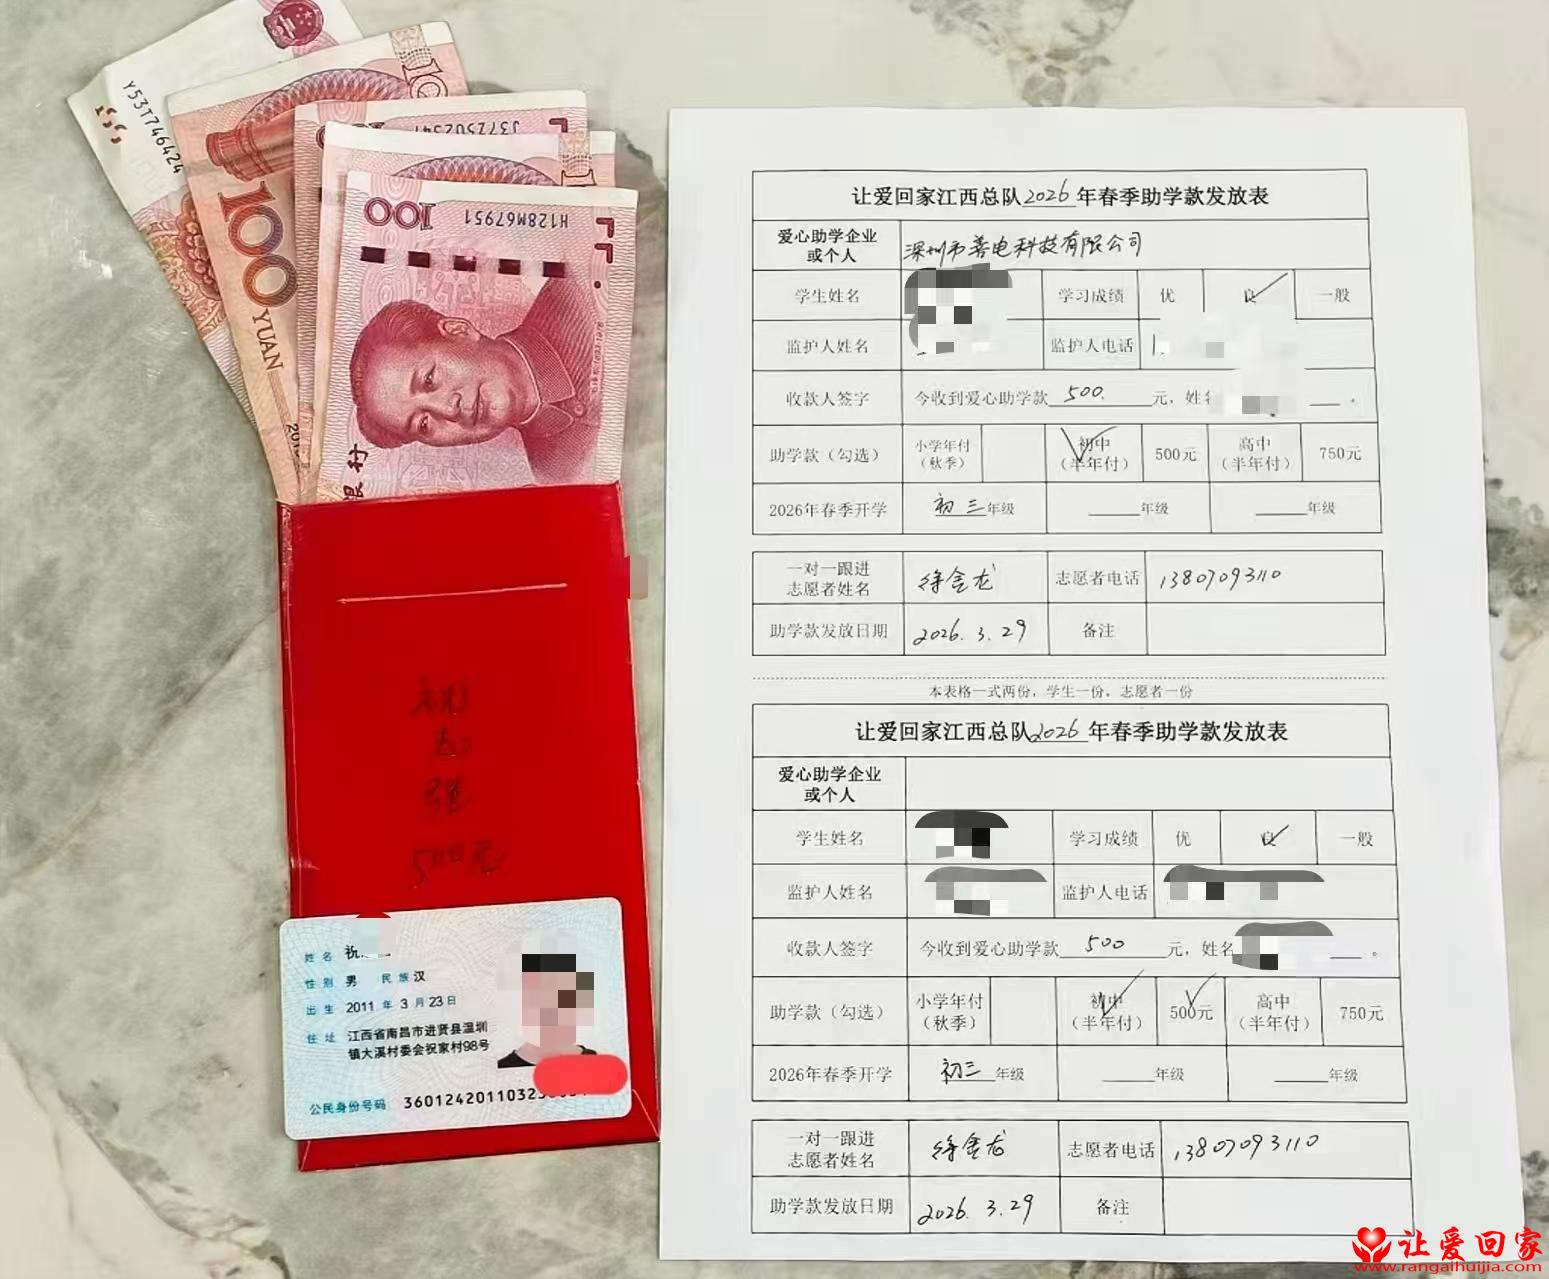 Y53T746424
J3723023
100
YUAN
100
H128M67951
500元
姓名 祝
性别 男 民族 汉
出生 2011 年 3 月 23 日
住址 江西省南昌市进贤县温圳
镇大溪村委会祝家村98号
公民身份号码
让爱回家江西总队2026年春季助学款发放表
爱心助学企业
或个人
深圳市善电科技有限公司
学生姓名 学习成绩 优 良✓ 一般
监护人姓名 监护人电话
收款人签字 今收到爱心助学款500.元，姓名 。
助学款（勾选） 小学年付（秋季） 初中（半年付）✓ 500元 高中（半年付） 750元
2026年春季开学 初三年级 年级 年级
一对一跟进
志愿者姓名
徐金龙 志愿者电话 13807093110
助学款发放日期 2026.3.29 备注
本表格一式两份，学生一份，志愿者一份
让爱回家江西总队2026年春季助学款发放表
爱心助学企业
或个人
学生姓名 学习成绩 优 良✓ 一般
监护人姓名 监护人电话
收款人签字 今收到爱心助学款500元，姓名 。
助学款（勾选） 小学年付（秋季） 初中（半年付）✓ 500元✓ 高中（半年付） 750元
2026年春季开学 初三年级 年级 年级
一对一跟进
志愿者姓名
徐金龙 志愿者电话 13807093110
助学款发放日期 2026.3.29 备注
让爱回家
www.rangaihuijia.com